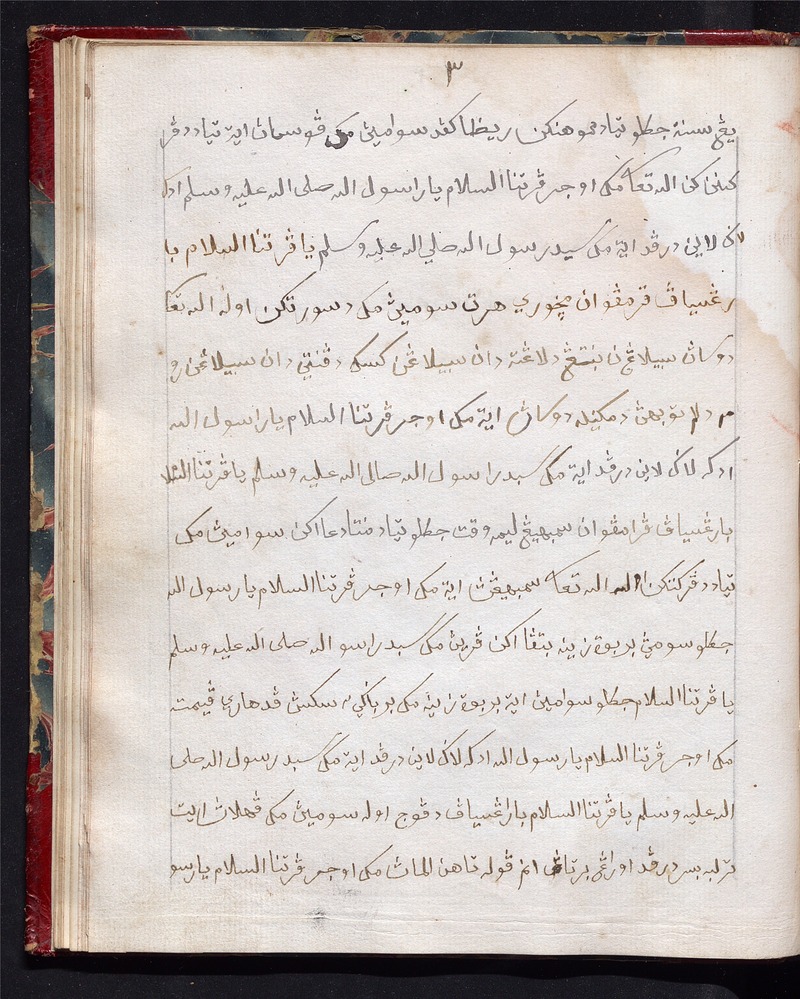 ٣
يڠ سنة جكلو تياد مموهنكن ريظا كڤد سوامين مك ڤوسمان ايت تياد دڤر
كننكن الله تعالى مك اوجر ڤرتنا السلام يا رسول الله صلى الله عليه وسلم ادكه
لاڬي لاين درڤد ايت مك سبد رسول الله صلى الله عليه وسلم يا ڤرتنا السلام با
رڠسياڤ ڤرمڤوان منچوري هرت سومين مك دسورتكن اوله الله تعالى
دوسان سبيلاڠن بنتڠ دلاڠت دان سبيلاڠن كسك دڤنتي دان سبيلاڠن رو
م دلم توبهن دمكينله دوسان ايت مك اوجر ڤرتنا السلام يا رسول الله
ادكه لاڬي لاين درڤد ايت مك سبد راسول الله صلى الله عليه وسلم يا ڤرتنا السلا
بارڠسياڤ ڤرامڤوان سمبهيڠ ليم وقت جكلو تياد منتا دعاكن سوامين مك
تياد دڤركننكن الله تعالى سمبهيڠن ايت مك اوجر ڤرتنا السلام يا رسول الله
جكلو سومين بربوة زينه بتاڤا اكن ڤرين مك سبد راسو الله صلى الله عليه وسلم
يا ڤرتنا السلام جكلو سوامين ايت بربوة زينه مك برباڬي٢ سكسن ڤد هاري قيمت
مك اوجر ڤرتنا السلام يا رسول الله ادكه لاڬي لاين درڤد ايت مك سبد رسول الله صلى
الله عليه وسلم يا ڤرتنا السلام بارڠسياڤ دڤوج اوله سومين مك ڤهلان ايت
ترلبه بسر درڤد اورڠ برتاڤ انم ڤوله تاهن لمان مك اوجر ڤرتنا السلام يا رسو